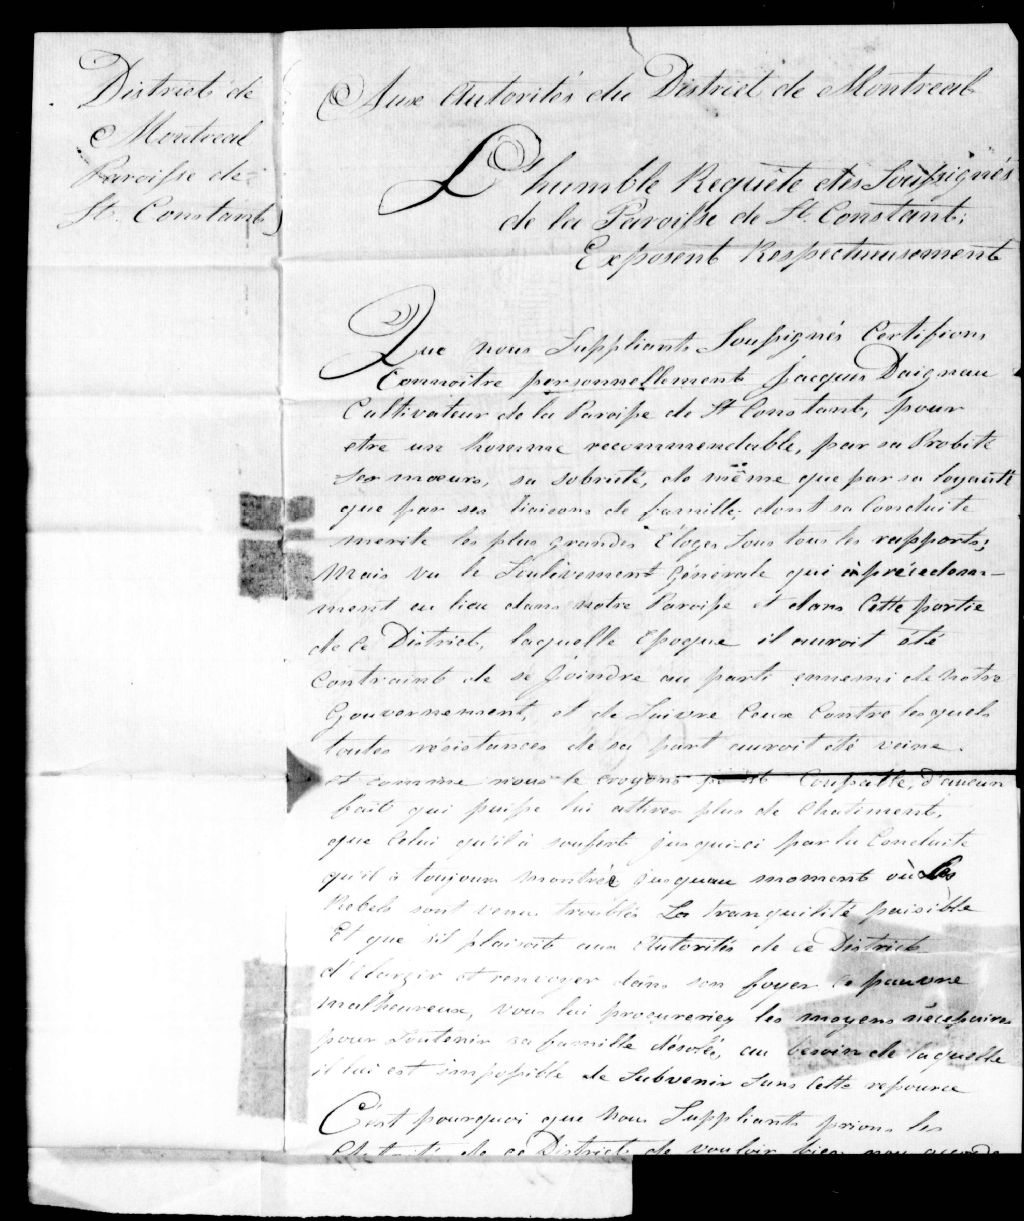 District de
Montreal
Paroisse de
St. Constant
Aux Autorités du District de Montreal
L'humble Requête des Soussignés
de la Paroisse de St. Constant,
Exposent Respectueusement
Que nous Suppliants Soussignés Certifions
Connoitre personnellement Jacques Daignau
Cultivateur de la Paroisse de St Constant, pour
etre un homme recommendable, par sa Probité
ses moeurs, sa sobrieté, de même que par sa loyauté
que par ses liaisons de famille, dont sa Conduite
merite les plus grandes Éloges Sous tous les rapports;
Mais vu le Soulèvement Générale qui à précédem-
ment eu lieu dans notre Paroisse et dans Cette partie
de Ce District, laquelle Epoque il auroit été
Contraint de se Joindre au parti ennemi de Notre
Gouvernement, et de Suivre Ceux Contre lesquels
toutes résistances de sa part auroit été veine.
et comme nous le croyons point Coupable, d'aucun
fait qui puisse lui attirer plus de Chatiment,
que Celui qu'il à soufert jusqui-ci par la Conduite
qu'il à toujours montrée jusquau moment où Les
Rebels sont venus troublés La tranquilité paisible
Et que s'il plaisoit aux Autorités de ce District
d'Elargir et renvoyer dans son foyer ce pauvre
malheureux, vous lui procureriez les moyens nécessaires
pour Soutenir sa famille désolée, au besoin de laquelle
il lui est impossible de Subvenir Sans Cette resource
C'est pourquoi que Nous Suppliants prions les
Autorités de ce District de vouloir bien nous accorde